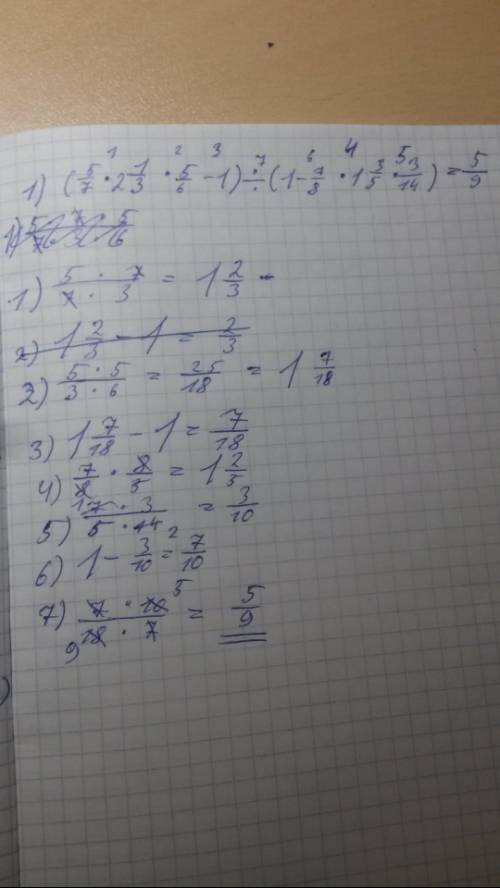 1) (5/7 · 2 1/3 · 5/6 - 1) ÷ (1 - 7/8 · 1 3/5 · 3/14) = 5/9
1) 5/7 · 7/3 · 5/6
1) 5 · 7 / 7 · 3 = 1 2/3 -
2) 1 2/3 - 1 = 2/3
2) 5 · 5 / 3 · 6 = 25/18 = 1 7/18
3) 1 7/18 - 1 = 7/18
4) 7/8 · 8/5 = 1 2/5
5) 7 · 3 / 5 · 14 = 3/10
6) 1 - 3/10 = 7/10
7) 7 · 10 / 18 · 7 = 5/9